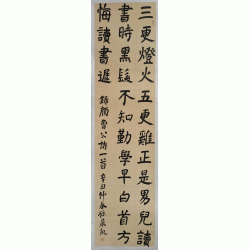 三更燈火五更雞正是男兒讀
書時黑髮不知勤學早白首方
悔讀書遲
錄顏魯公詩一首辛丑仲春